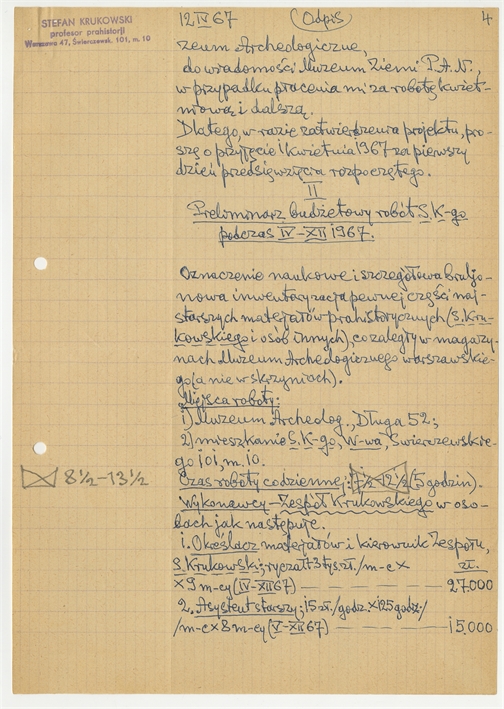 STEFAN KRUKOWSKI
profesor prahistorii
Warszawa 47, Świerczewsk. 101, m. 10
12 IV 67 (Odpis) 4
zeum Archeologiczne,
do wiadomości Muzeum Ziemi P.A.N.,
w przypadku płacenia mi za robotę kwiet-
niową i dalszą.
Dlatego, w razie zatwierdzenia projektu, pro-
szę o przyjęcie 1 kwietnia 1967 za pierwszy
dzień przedsięwzięcia rozpoczętego.
II
Preliminarz budżetowy robót S. K-go
podczas IV–XII 1967.
Oznaczenie naukowe i szczegółowa brulio-
nowa inwentaryzacja pewnej części naj-
starszych materjałów prahistorycznych (S. Kru-
kowskiego i osób innych), co zaległy w magazy-
nach Muzeum Archeologicznego warszawskie-
go (a nie w skrzyniach).
Miejsca roboty:
1) Muzeum Archeolog., Długa 52;
2) mieszkanie S. K-go, W-wa, Świerczewskie-
go 101, m. 10.
8 1/2 – 13 1/2
Czas roboty codziennej: 7 1/2 – 12 1/2 (5 godzin).
Wykonawcy – Zespół Krukowskiego w oso-
bach jak następuje.
1. Określacz materjałów i kierownik Zespołu,
S. Krukowski; ryczałt 3 tys. zł. /m-c × zł.
× 9 m-cy (IV–XII 67) — 27.000
2. Asystent starszy; 15 zł. /godz. × 125 godz. /
/m-c × 8 m-cy (V–XII 67) — 15.000